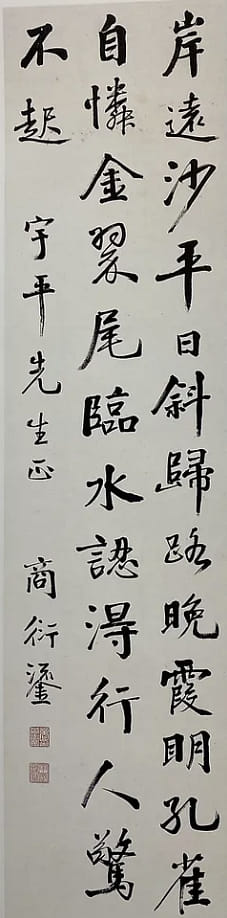 岸遠沙平日斜歸路晚霞明孔雀
自憐金翠尾臨水認得行人驚
不起
宇平先生正
商衍鎏